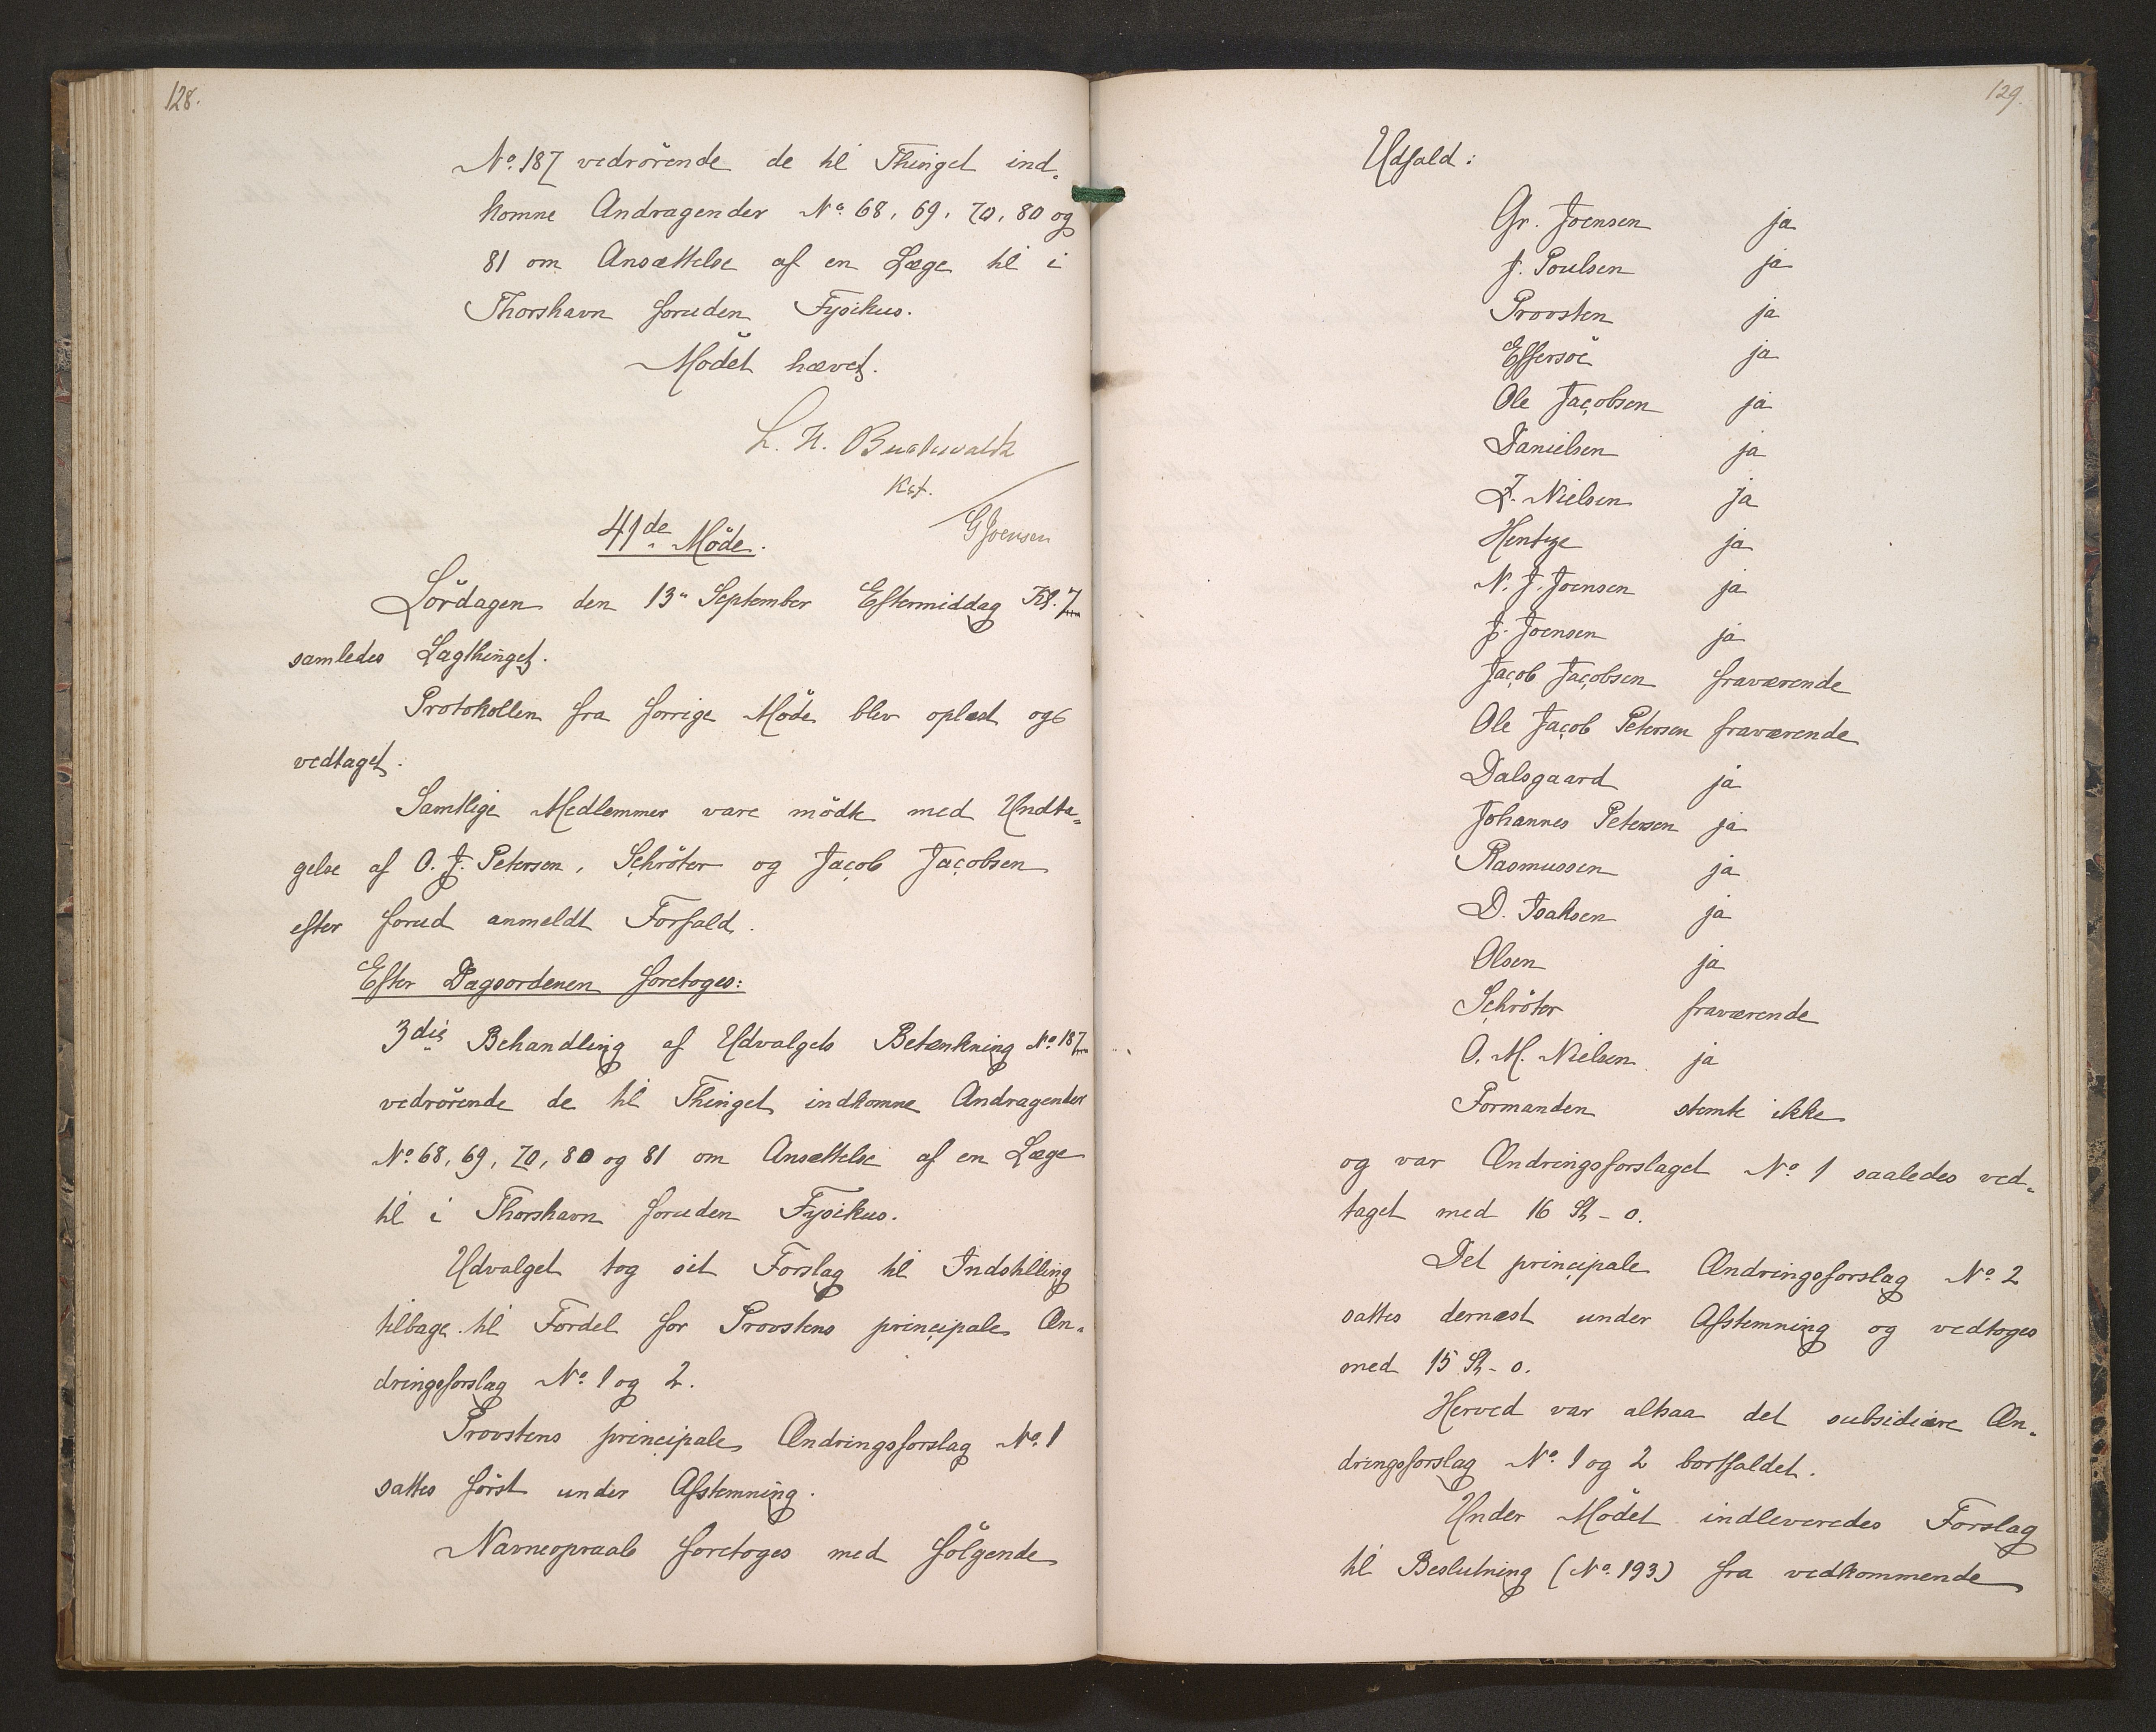 128.
No. 187 vedrörende de til Thinget ind-
komne Andragender No. 68, 69, 70, 80 og
81 om Ansættelse af en Læge til i
Thorshavn foruden Fysikus.
Mödet hævet.
Kst.
GJoensen
41de Möde.
Lördagen den 13" September Eftermiddag Kl. 7
samledes Lagthinget.
Protokollen fra forrige Möde blev oplæst og
vedtaget.
Samtlige Medlemmer vare mödte med Undta-
gelse af O. J. Petersen, Schröter og Jacob Jacobsen
efter forud anmeldt Forfald.
Efter Dagsordenen foretoges:
3die Behandling af Udvalgets Betænkning No. 187
vedrörende de til Thinget indkomne Andragender
No. 68, 69, 70, 80 og 81 om Ansættelse af en Læge
til i Thorshavn foruden Fysikus.
Udvalget tog sit Forslag til Indstilling
tilbage til Fordel for Provstens principale Æn-
dringsforslag No. 1 og 2.
Provstens principale Ændringsforslag No. 1
sattes först under Afstemning.
Navneopraab foretoges med fölgende
129.
Udfald:
Gr. Joensen ja
J. Poulsen ja
Provsten ja
Effersöe ja
Ole Jacobsen ja
Danielsen ja
Z. Nielsen ja
Hentze ja
N. J. Joensen ja
J. Joensen ja
Jacob Jacobsen fraværende
Ole Jacob Petersen fraværende
Dalsgaard ja
Johannes Petersen ja
Rasmussen ja
D. Isaksen ja
Olsen ja
Schröter fraværende
O. M. Nielsen ja
Formanden stemte ikke
og var Ændringsforslaget No. 1 saaledes ved-
taget med 16 St - 0.
Det principale Ændringsforslag No. 2
sattes dernæst under Afstemning og vedtoges
med 15 St - 0.
Herved var altsaa det subsidiære Æn-
dringsforslag No. 1 og 2 bortfaldet.
Under Mödet indleveredes Forslag
til Beslutning (No. 193) fra vedkommende